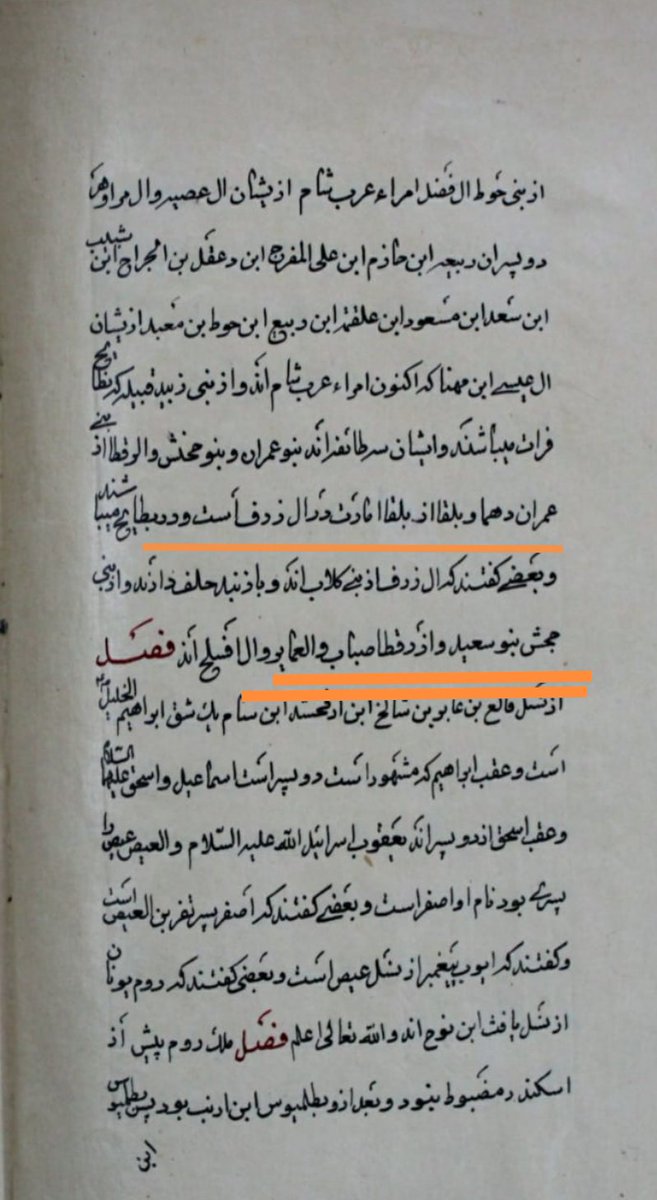 از بنی حوط ال فضل امراء عرب شام از یشان ال عصیر وال مراوهم
دو پسران ربیعه ابن حازم ابن علی المفرج ابن دعقل بن الجراح ابن شبیب
ابن سعد ابن مسعود ابن علقمه ابن ربیع ابن حوط بن معبد از یشان
ال عیسے ابن مهنا که اکنون امراء عرب شام اند و از بنی زبید قبیله که بطایح
فرات میباشند و ایشان سه طائفه اند بنو عمران و بنو محنش والرقطا از بنے
عمران دهما و بلقا از بلقا امارت در ال زرف است و در بطایح میباشند
و بعضے گفتند که ال زرف از بنے کلاب اند و با زبید حلف دارند و از بنی
حجش بنو سعید و از رقطا ضباب والعمایر وال افیلح اند فصل
از نسل فالغ بن عابر بن شالخ ابن ارفحشد ابن سام یک شق ابراهیم الخلیل
است و عقب ابراهیم که مشهور است دو پسر است اسماعیل و اسحق علیهما السلام
و عقب اسحق از دو پسر اند یعقوب اسرائیل الله علیه السلام والعیص عیص را
پسرے بود نام او اصفر است و بعضے گفتند که اصفر پسر نفر بن العیص است
و گفتند که ایوب پیغمبر از نسل عیص است و بعضی گفتند که روم یونان
از نسل یافث ابن نوح اند والله تعالی اعلم فصل ملک روم پیش از
اسکندر مضبوط نبود و بعد ازو بطلمیوس ابن ارنب بود پس بطلمیوس
ابن